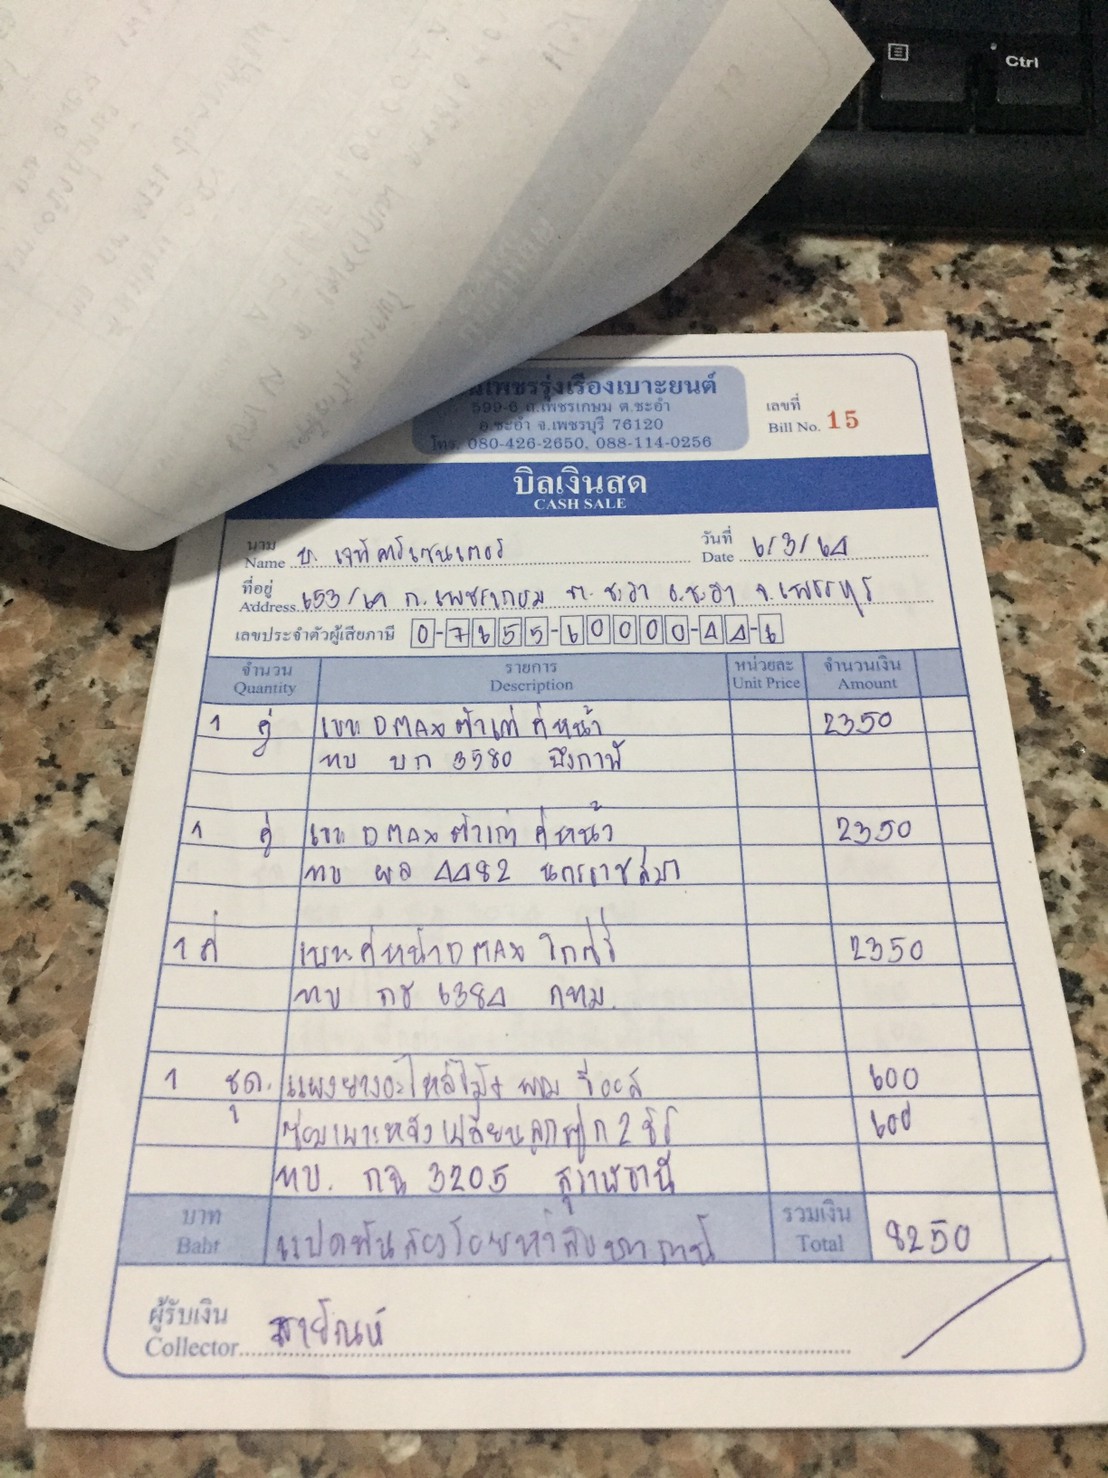 Ctrl
นเพชรรุ่งเรืองเบาะยนต์
599-6 ถ.เพชรเกษม ต.ชะอำ
อ.ชะอำ จ.เพชรบุรี 76120
โทร. 080-426-2650, 088-114-0256
เลขที่
Bill No. 15
บิลเงินสด
CASH SALE
นาม
Name บ. เจที คาร์เซนเตอร์
วันที่
Date 6/3/64
ที่อยู่
Address 653/67 ถ.เพชรเกษม ต.ชะอำ อ.ชะอำ จ.เพชรบุรี
เลขประจำตัวผู้เสียภาษี 0-7655-60000-44-6
จำนวน รายการ หน่วยละ จำนวนเงิน
Quantity Description Unit Price Amount
1 คู่ เบาะ DMAX ตัวเก่า คู่หน้า 2350
ทบ บก 3580 บึงกาฬ
1 คู่ เบาะ DMAX ตัวเก่า คู่หน้า 2350
ทบ ผล 4482 นครราชสีมา
1 คู่ เบาะคู่หน้า DMAX 2350
ทบ กช 6384 กทม.
1 ชุด. 600
ซ่อมเบาะหลัง เปลี่ยนลูกฟูก 2 600
ทบ. กฉ 3205 สุราษธานี
บาท แปดพันสองร้อยห้าสิบบาทถ้วน รวมเงิน 8250
Baht Total
ผู้รับเงิน
Collector